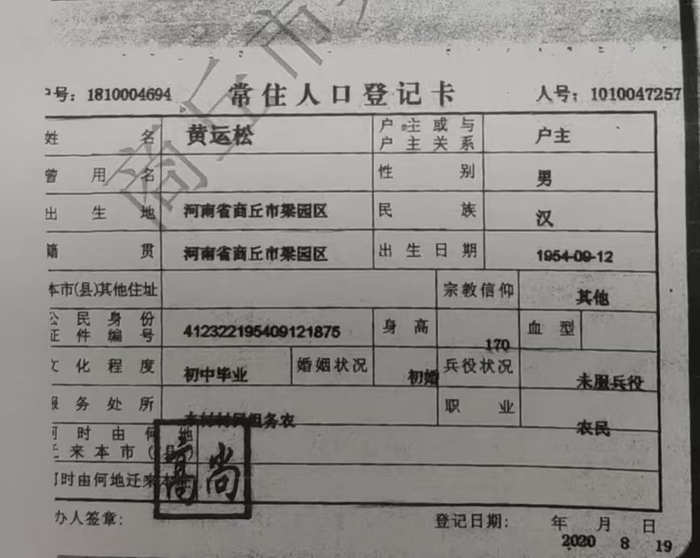 户号：1810004694 常住人口登记卡 人号：1010047257
姓名 黄运松 户主或与户主关系 户主
曾用名 性别 男
出生地 河南省商丘市梁园区 民族 汉
籍贯 河南省商丘市梁园区 出生日期 1954-09-12
本市(县)其他住址 宗教信仰 其他
公民身份证件编号 412322195409121875 身高 170 血型
文化程度 初中毕业 婚姻状况 初婚 兵役状况 未服兵役
服务处所 本村村民组务农 职业 农民
何时由何地迁来本市(县)
何时由何地迁来本
办人签章： 登记日期： 年 月 日
2020 8 19
商丘市